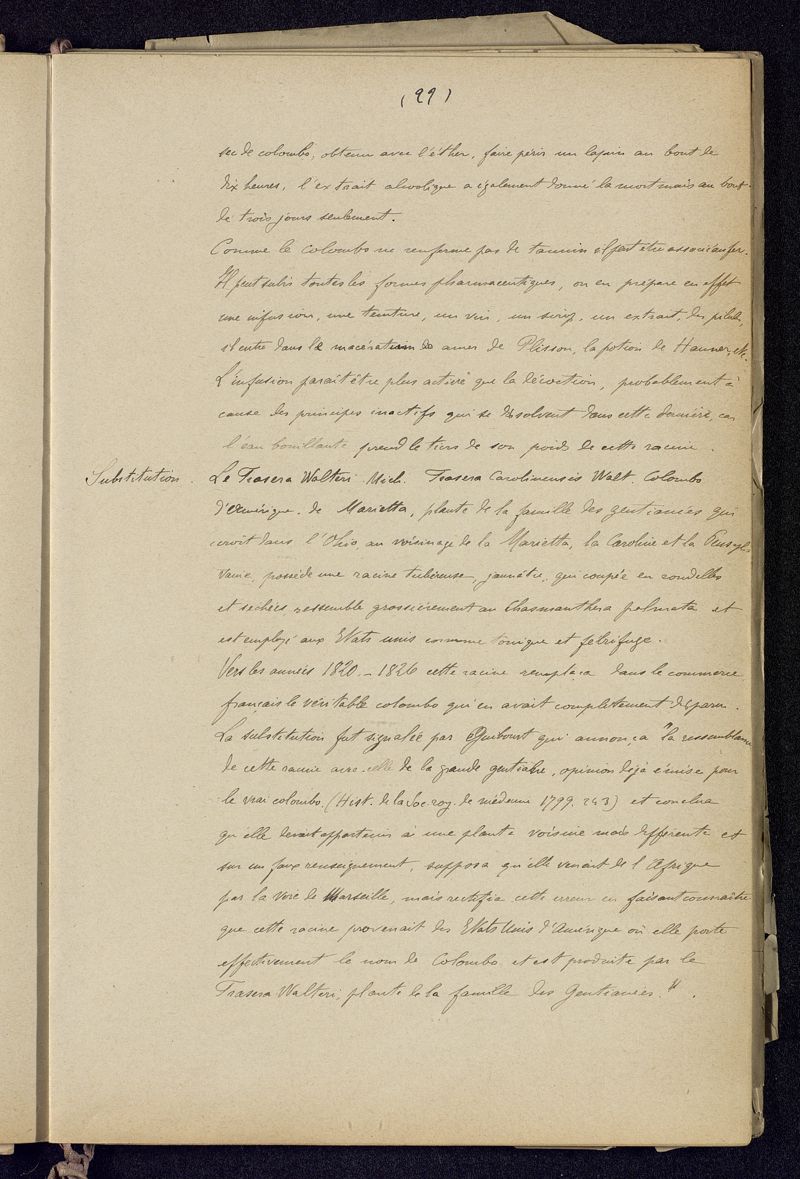 (99)
sec de colombo, obtenu avec l'éther, faire périr un lapin au bout de
dix heures, l'extrait alcoolique a également donné la mort mais au bout
de trois jours seulement.
Comme le colombo ne renferme pas de tannin il peut etre associé au fer.
Il peut subir toutes les formes pharmaceutiques, on en prépare en effet
une infusion, une teinture, un vin, un sirop, un extrait, des pilules,
il entre dans le macératum de amer de Plisson, la potion de Hauner, etc.
L'infusion paraît être plus active que la décoction, probablement à
cause des principes inactifs qui se dissolvent dans cette dernière, car
l'eau bouillante prend le tiers de son poids de cette racine.
Substitution. Le Frasera Walteri Mich. Frasera Carolinensis Walt. Colombo
d'Amérique. de Marietta, plante de la famille des gentianées qui
croit dans l'Ohio au voisinage de la Marietta, la Caroline et la Pensyl
vanie, possède une racine tubéreuse, jaunâtre, qui coupée en rondelles
et séchées ressemble grossièrement au Chasmanthera palmata et
est employé aux Etats unis comme tonique et fébrifuge.
Vers les années 1820 - 1826 cette racine remplaça dans le commerce
français le véritable colombo qui en avait complètement disparu.
La substitution fut signalée par Guibourt qui annonça "la ressemblance
de cette racine avec celle de la grande gentiane, opinion déjà émise pour
le vrai colombo. (Hist. de la Soc. roy. de médecine 1799. 243) et conclua
qu'elle devait appartenir à une plante voisine mais différente et
sur un faux renseignement, supposa qu'elle venait de l'Afrique
par la voie de Marseille, mais rectifia cette erreur en faisant connaître
que cette racine provenait des Etats Unis d'Amérique où elle porte
effectivement le nom de Colombo et est produite par le
Frasera Walteri, plante de la famille des Gentianées."